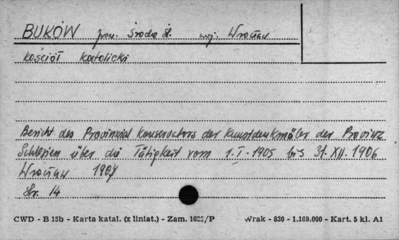 BUKÓW pow. Środa Śl. woj. Wrocław
kościół katolicki
Bericht des Provinzial Konservators der Kunstdenkmäler der Provinz
Schlesien über die Tätigkeit vom 1.I.1905 bis 31.XII.1906
Wrocław 1907
Str. 14
CWD - B 15b - Karta katal. (z liniat.) - Zam. 1622/P Wrak - 830 - 1.169.000 - Kart. 5 kl. A1